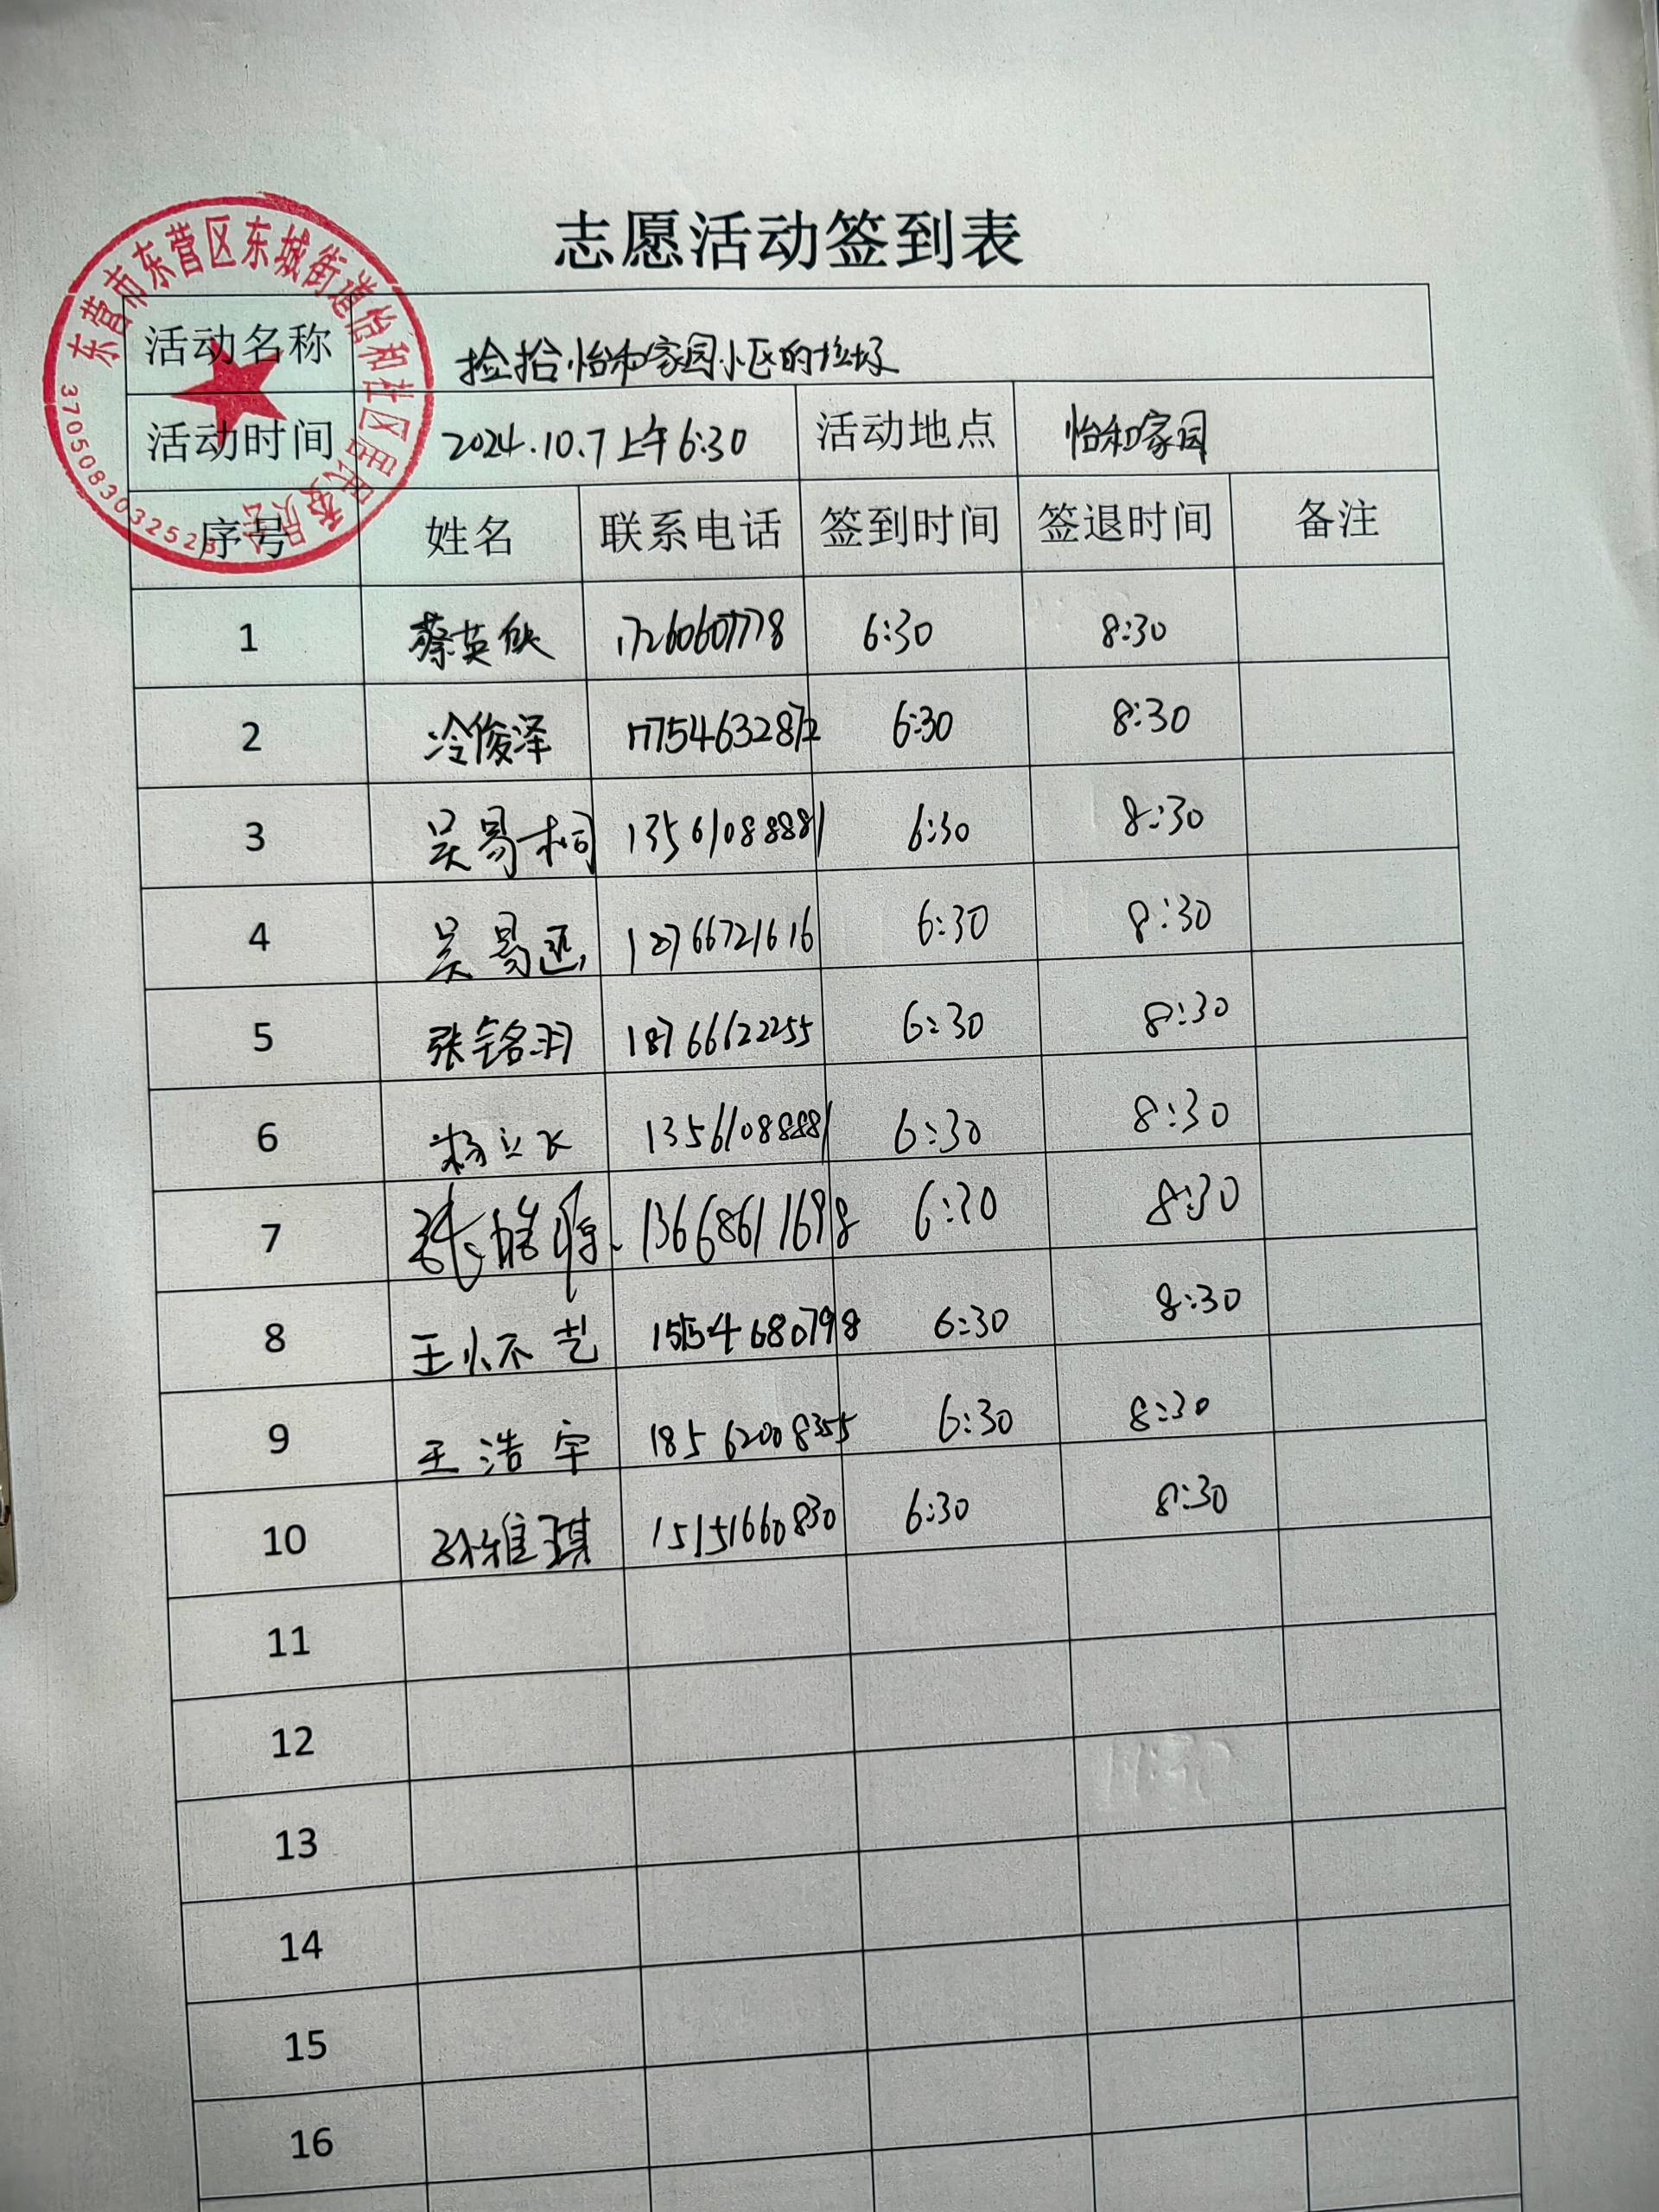 东营市东营区东城街道怡和社区居民委员会
3705083032528
志愿活动签到表
活动名称 捡拾怡和家园小区的垃圾
活动时间 2024.10.7上午6:30 活动地点 怡和家园
序号 姓名 联系电话 签到时间 签退时间 备注
1 蔡英俠 17260607778 6:30 8:30
2 冷俊泽 17754632872 6:30 8:30
3 吴易桐 13561088881 6:30 8:30
4 吴易 18766721616 6:30 8:30
5 张铭羽 18766622255 6:30 8:30
6 杨立 13561088881 6:30 8:30
7 张皓 13668611698 6:30 8:30
8 王怀艺 15554680798 6:30 8:30
9 王浩宇 18562008355 6:30 8:30
10 孙雅琪 15151660830 6:30 8:30
11
12
13
14
15
16